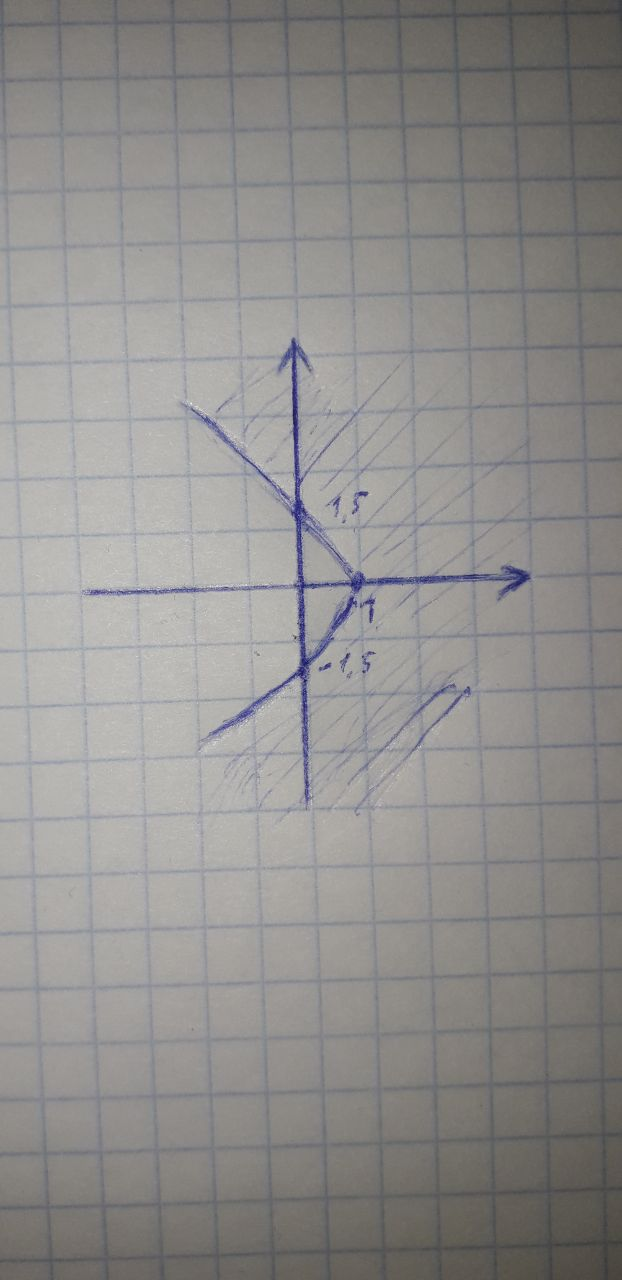 1,5
1
-1,5